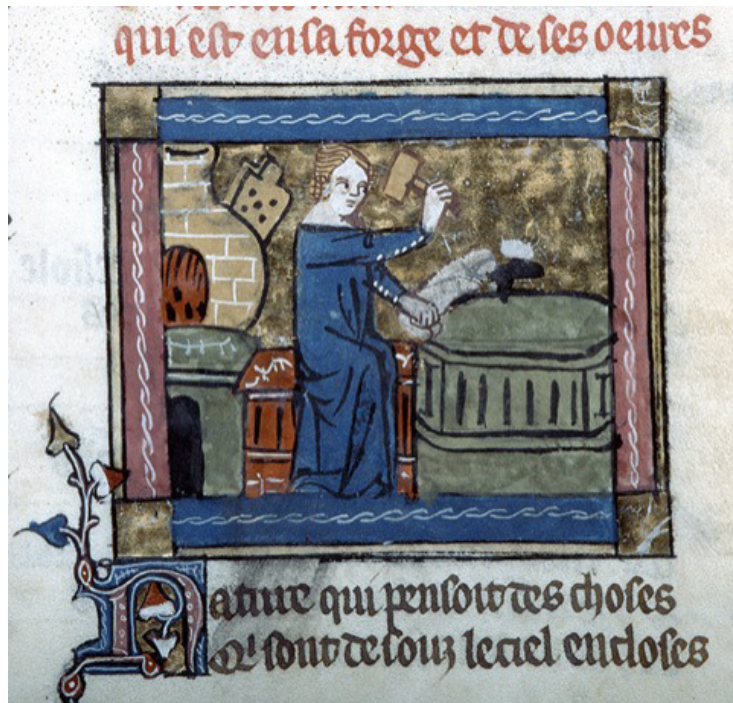 qui est en sa forge et de ses oeuures
Nature qui pensoit des choses
Qi sont de souz le ciel encloses